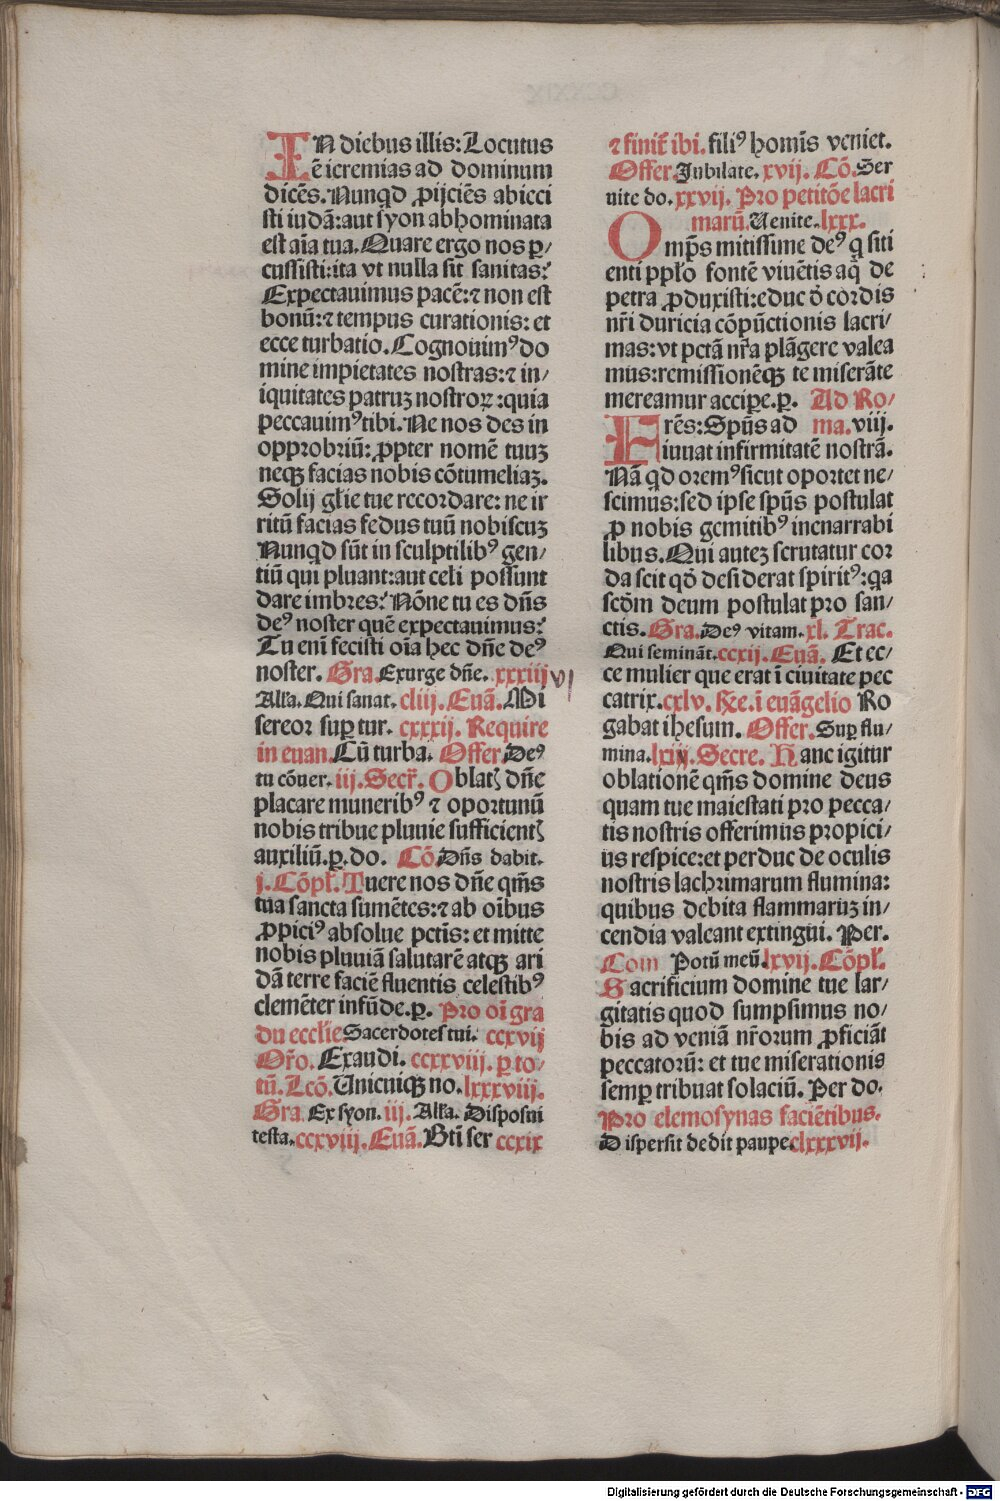 IN diebus illis: Locutus
ē ieremias ad dominum
dicēs. Nunqd ꝓijciēs abieci
sti iudā: aut syon abhominata
est aīa tua. Quare ergo nos ꝑ/
cussisti: ita vt nulla sit sanitas?
Expectauimus pacē: ⁊ non est
bonū: ⁊ tempus curationis: et
ecce turbatio. Cognouimꝰ do
mine impietates nostras: ⁊ in/
iquitates patruꝫ nostroꝝ: quia
peccauimꝰ tibi. Ne nos des in
opprobriū: ꝓpter nomē tuuꝫ
neqꝫ facias nobis cōtumeliaꝫ.
Solij gl̄ie tue recordare: ne ir
ritū facias fedus tuū nobiscuꝫ
Nunqd sūt in sculptilibꝰ gen/
tiū qui pluant: aut celi possunt
dare imbres? Nōne tu es dn̄s
deꝰ noster quē expectauimus?
Tu enī fecisti oīa hec dn̄e deꝰ
noster. Gra. Exurge dn̄e. xxxiiij vj
All'a. Qui sanat. cliij. Euā. Mi
sereor suꝑ tur. cxxxij. Require
in euan. Cū turba. Offer. Deꝰ
tu cōuer. iij. Secr̄. Oblatꝭ dn̄e
placare muneribꝰ ⁊ oportunū
nobis tribue pluuie sufficientꝭ
auxiliū. ꝑ. do. Cō. Dn̄s dabit.
j. Cōpl'. Tuere nos dn̄e qm̄s
tua sancta sumētes: ⁊ ab oībus
ꝓpiciꝰ absolue pctīs: et mitte
nobis pluuiā salutarē atqꝫ ari
dā terre faciē fluentis celestibꝰ
clemēter infūde. ꝑ. Pro oī gra
du eccl'ie Sacerdotes tui. ccxvij
Or̄o. Exaudi. ccxxviij. ꝑ to/
tū. Lcō. Unicuiqꝫ no. lxxxviij.
Gra. Ex syon. iij. All'a. Disposui
testa. ccxviij. Euā. Bt̄i ser ccxix
⁊ finit̄ ibi. filiꝰ homīs veniet.
Offer. Jubilate. xvij. Cō. Ser
uite do. xxvij. Pro petitōe lacri
marū. Uenite. lxxx.
Omp̄s mitissime deꝰ q̄ siti
enti ppl'o fontē viuētis aq̄ de
petra ꝓduxisti: educ d̄ cordis
nr̄i duricia cōpūctionis lacri/
mas: vt pctā nr̄a plāgere valea
mus: remissionēqꝫ te miserāte
mereamur accipe. ꝑ. Ad Ro/
Frēs: Spūs ad ma. viij.
iuuat infirmitatē nostrā.
Nā qd oremꝰ sicut oportet ne/
scimus: sed ipse spūs postulat
ꝓ nobis gemitibꝰ inenarrabi
libus. Qui auteꝫ scrutatur cor
da scit qd̄ desiderat spiritꝰ: qa
scd̄m deum postulat pro san/
ctis. Gra. Deꝰ vitam. xl. Trac.
Qui semināt. ccxij. Euā. Et ec/
ce mulier que erat ī ciuitate pec
catrix. cxlv. Hēc. ī euāgelio Ro
gabat ihesum. Offer. Suꝑ flu/
mina. lxiij. Secre. Hanc igitur
oblationē qm̄s domine deus
quam tue maiestati pro pecca/
tis nostris offerimus propici/
us respice: et perduc de oculis
nostris lachrimarum flumina:
quibus debita flammaruꝫ in/
cendia valeant extingui. Per.
Com Potū meū. lxvij. Cōpl'.
Sacrificium domine tue lar/
gitatis quod sumpsimus no/
bis ad veniā nr̄orum ꝓficiāt
peccatorū: et tue miserationis
semꝑ tribuat solaciū. Per do.
Pro elemosynas faciētibus.
Dispersit dedit paupe. clxxxvij.
Digitalisierung gefördert durch die Deutsche Forschungsgemeinschaft - DFG